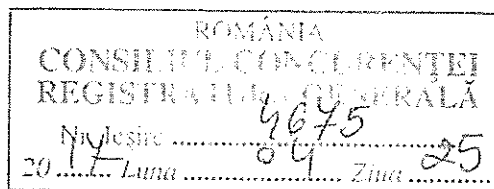 ROMÂNIA
CONSILIUL CONCURENȚEI
REGISTRATURA GENERALĂ
Nr. Ieșire 4675
2017 Luna 04 Ziua 25